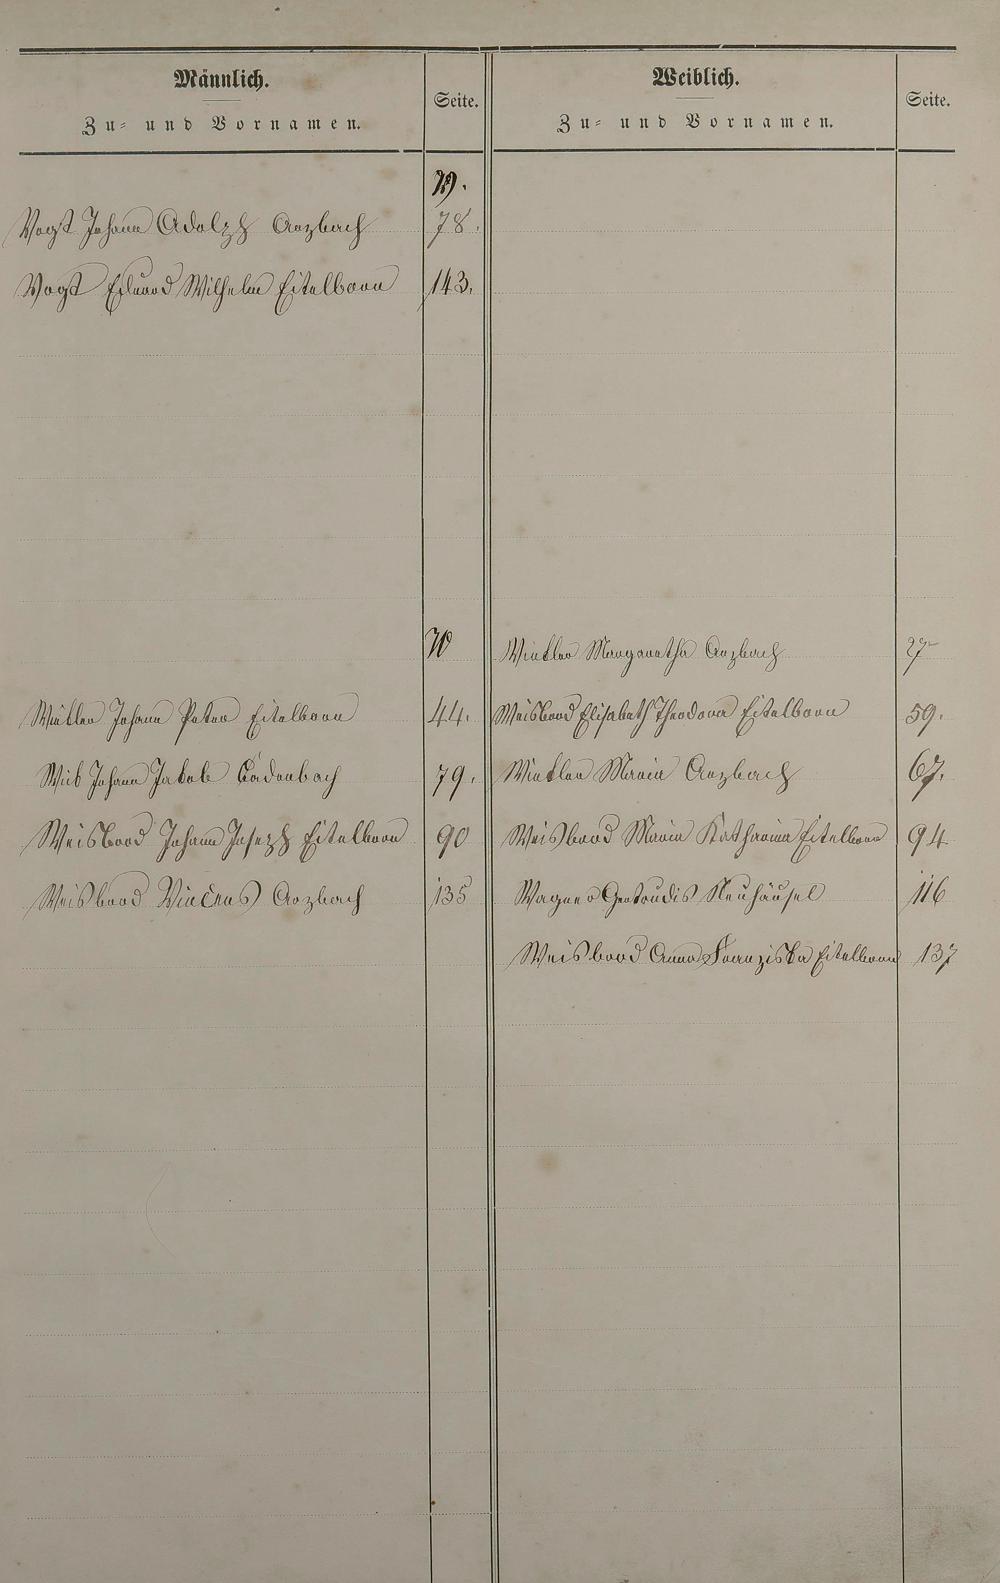 Männlich.
Zu- und Vornamen.
Seite.
Weiblich.
Zu- und Vornamen.
Seite.
V.
Vogt Johann Adolph Arzbach 78.
Vogt Eduard Wilhelm Eitelborn 143.
W
Winkler Margaretha Arzbach 27
Winkler Johann Peter Eitelborn 44.
Weisbrod Elisabeth Theodora Eitelborn 59.
Johann Jakob Cadenbach 79.
Winkler Maria Arzbach 67.
Weisbrod Johann Joseph Eitelborn 90
Weisbrod Maria Katharina Eitelborn 94
Weisbrod Vincens Arzbach 135
Wagner Gertrudis Neuhäusel 116
Weisbrod Anna Franziska Eitelborn 137